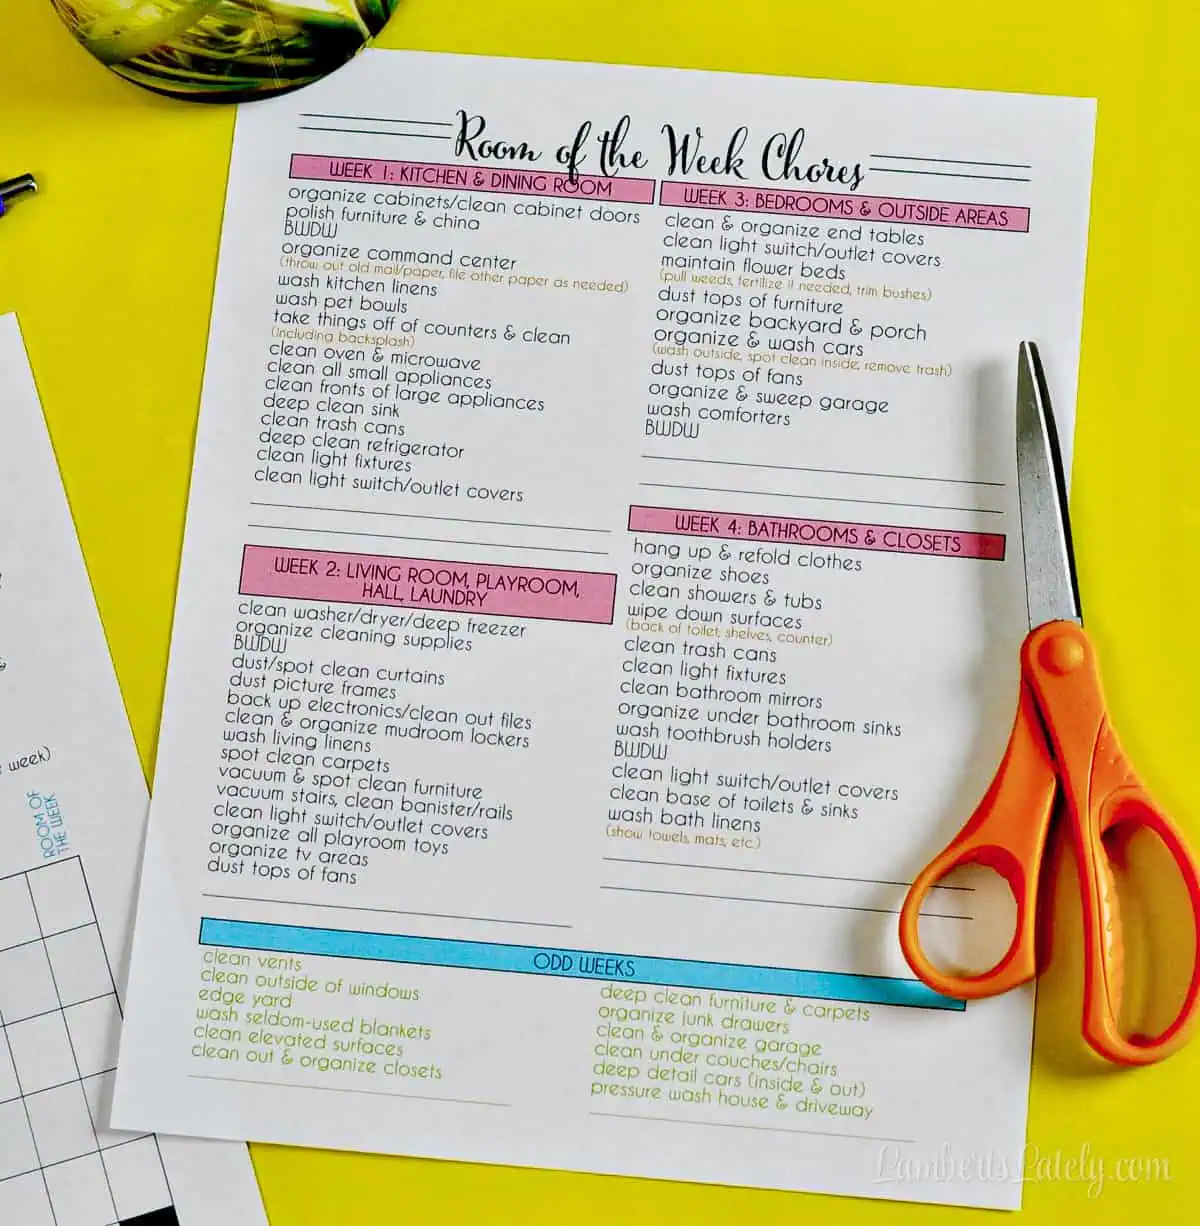 Room of the Week Chores
WEEK 1: KITCHEN & DINING ROOM
organize cabinets/clean cabinet doors
polish furniture & china
BWDW
organize command center
(throw out old mail/paper, file other paper as needed)
wash kitchen linens
wash pet bowls
take things off of counters & clean
(including backsplash)
clean oven & microwave
clean all small appliances
clean fronts of large appliances
deep clean sink
clean trash cans
deep clean refrigerator
clean light fixtures
clean light switch/outlet covers
WEEK 2: LIVING ROOM, PLAYROOM,
HALL, LAUNDRY
clean washer/dryer/deep freezer
organize cleaning supplies
BWDW
dust/spot clean curtains
dust picture frames
back up electronics/clean out files
clean & organize mudroom lockers
wash living linens
spot clean carpets
vacuum & spot clean furniture
vacuum stairs, clean banister/rails
clean light switch/outlet covers
organize all playroom toys
organize tv areas
dust tops of fans
WEEK 3: BEDROOMS & OUTSIDE AREAS
clean & organize end tables
clean light switch/outlet covers
maintain flower beds
(pull weeds, fertilize if needed, trim bushes)
dust tops of furniture
organize backyard & porch
organize & wash cars
(wash outside, spot clean inside, remove trash)
dust tops of fans
organize & sweep garage
wash comforters
BWDW
WEEK 4: BATHROOMS & CLOSETS
hang up & refold clothes
organize shoes
clean showers & tubs
wipe down surfaces
(back of toilet, shelves, counter)
clean trash cans
clean light fixtures
clean bathroom mirrors
organize under bathroom sinks
wash toothbrush holders
BWDW
clean light switch/outlet covers
clean base of toilets & sinks
wash bath linens
(show towels, mats, etc.)
ODD WEEKS
clean vents
clean outside of windows
edge yard
wash seldom-used blankets
clean elevated surfaces
clean out & organize closets
deep clean furniture & carpets
organize junk drawers
clean & organize garage
clean under couches/chairs
deep detail cars (inside & out)
pressure wash house & driveway
&
week)
ROOM OF
THE WEEK
LambertsLately.com